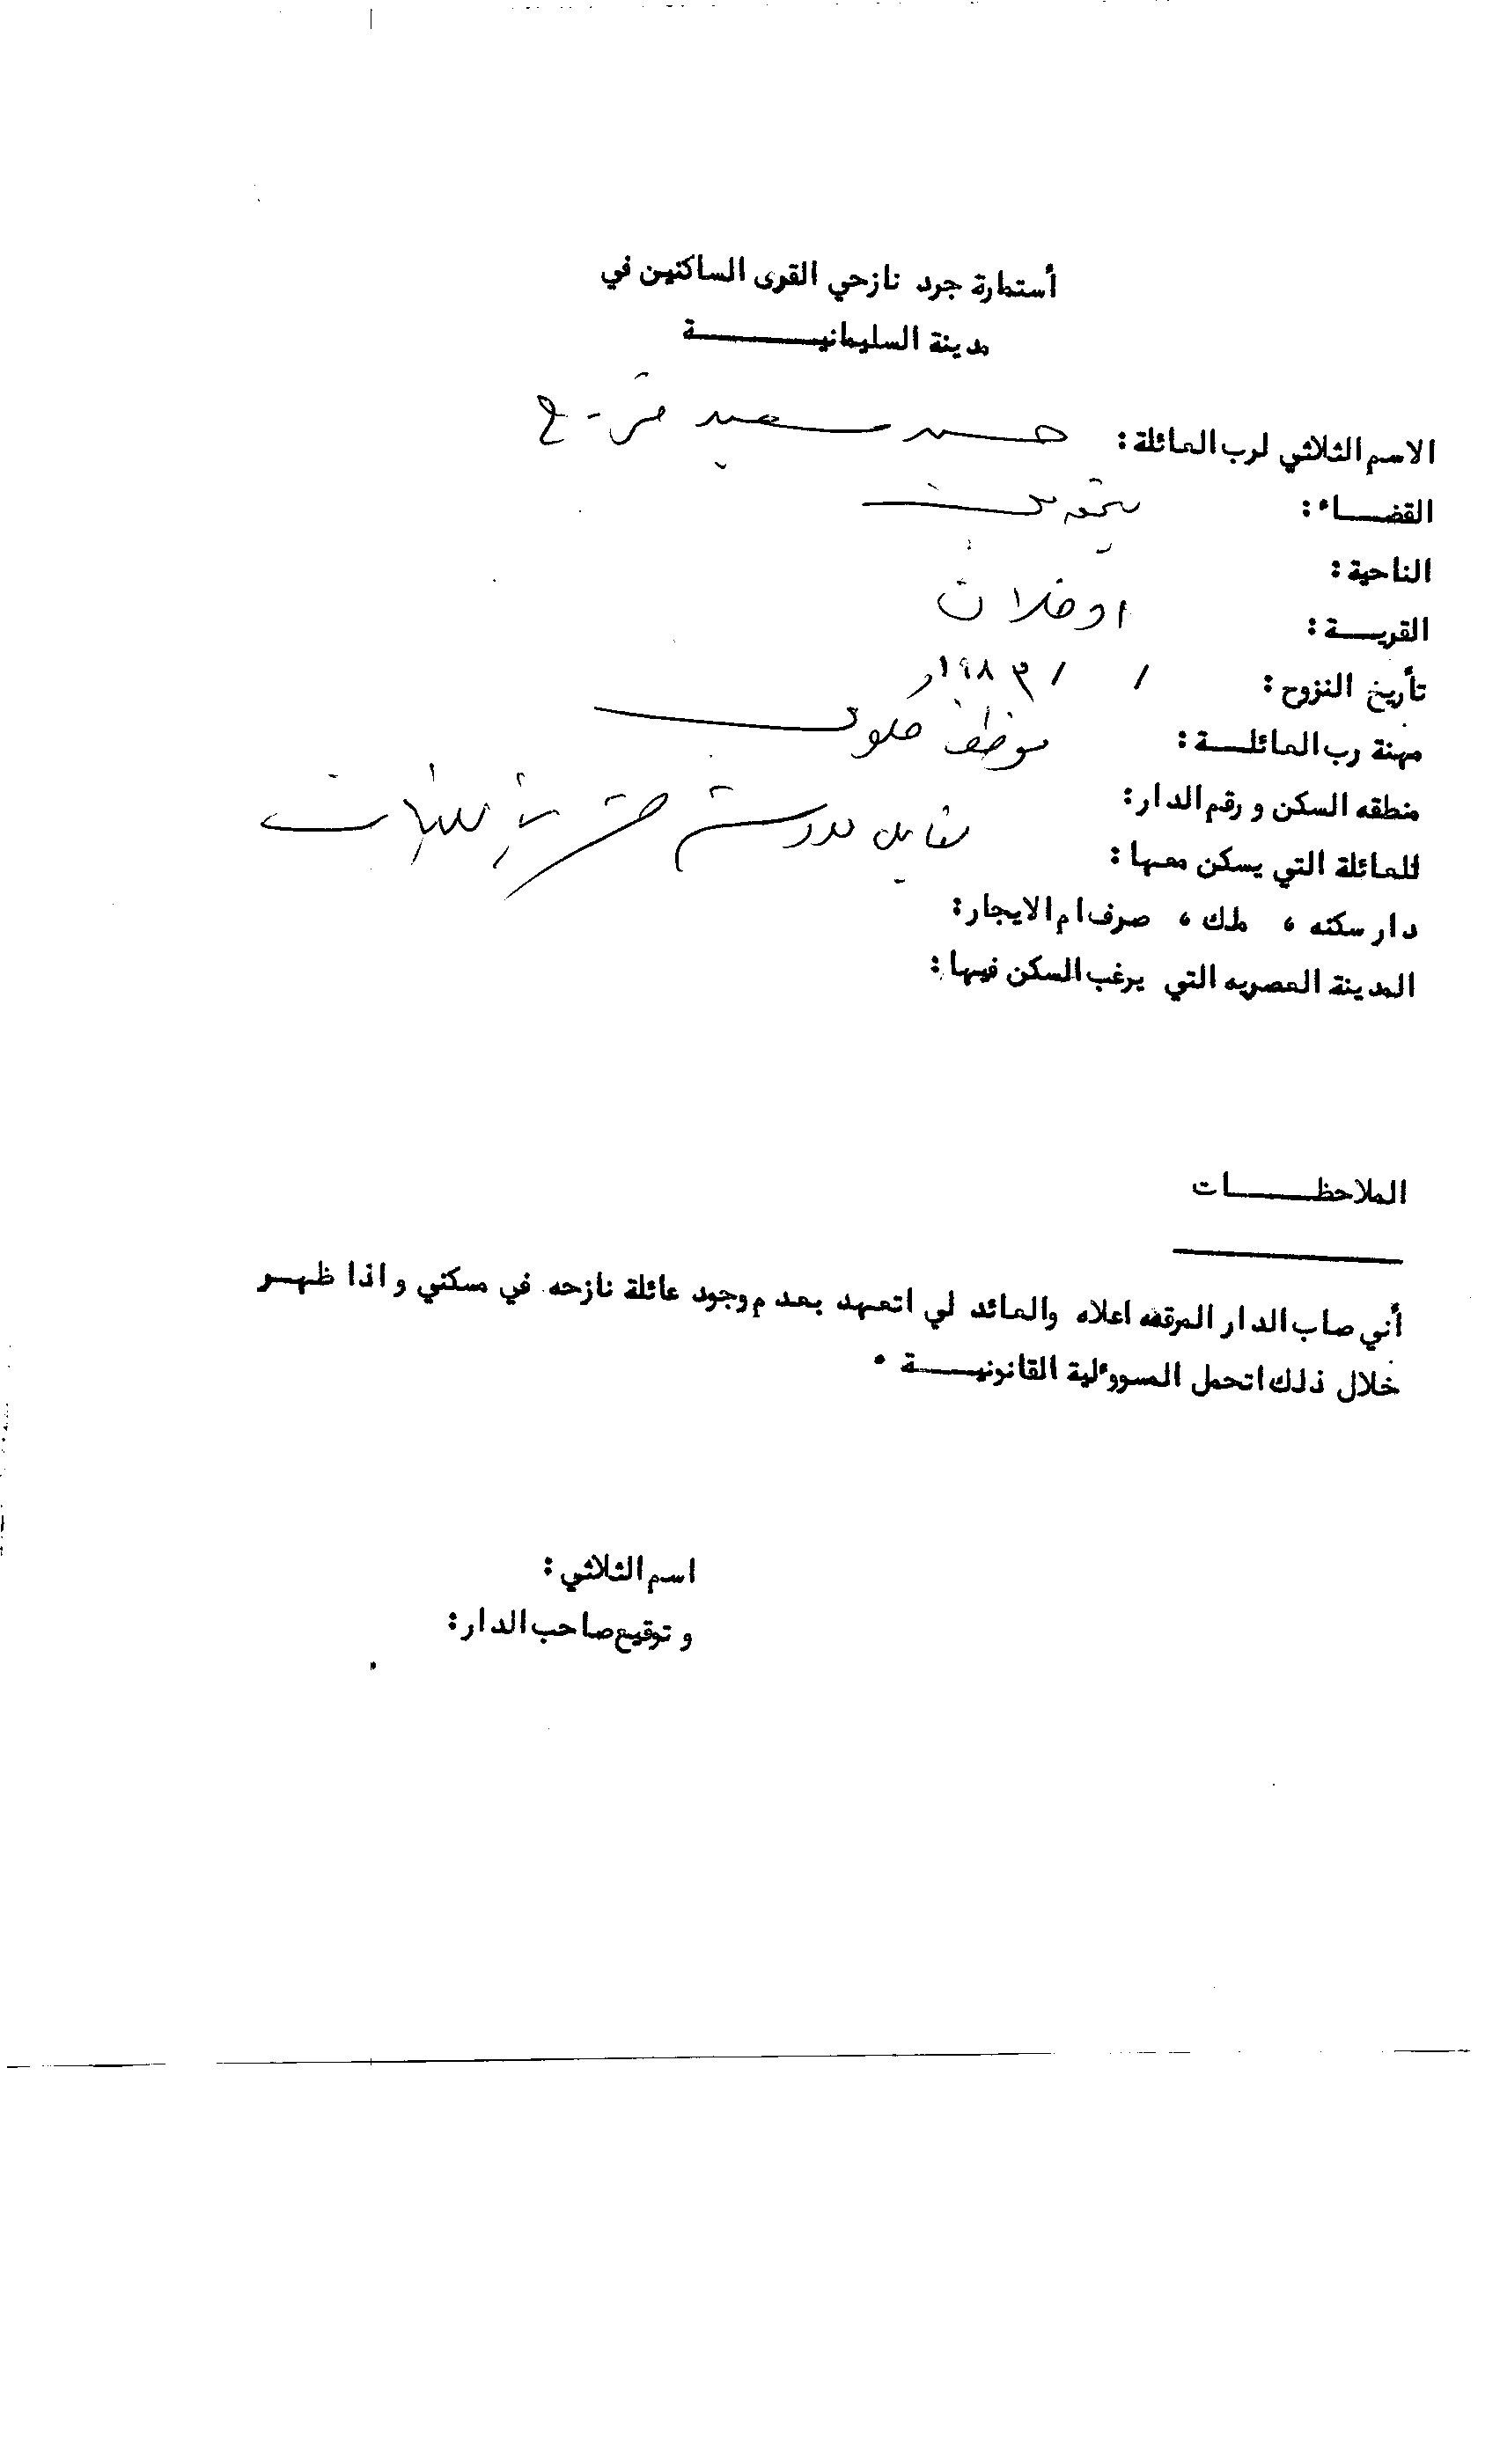 أستمارة جرد نازحي القرى الساكنين في
مدينة السليمانيـــــــــة
الاسم الثلاثي لرب العائلة: حسن سعيد
القضـــاء:
الناحية:
القريــة:
تأريخ النزوح: / / ١٩٨٣
مهنة رب العائلــة: موظف
منطقه السكن و رقم الدار:
للعائلة التي يسكن معها: مقابل مدرسة
دار سكنه ، ملك ، صرف ام الايجار:
المدينة العصريه التي يرغب السكن فيها:
الملاحظـــــــات
أني صاب الدار المرقمه اعلاه والعائد لي اتعهد بعدم وجود عائلة نازحه في مسكني و اذا ظهــر
خلال ذلك اتحمل المسوولية القانونيـــة .
اسم الثلاثي :
و توقيع صاحب الدار: